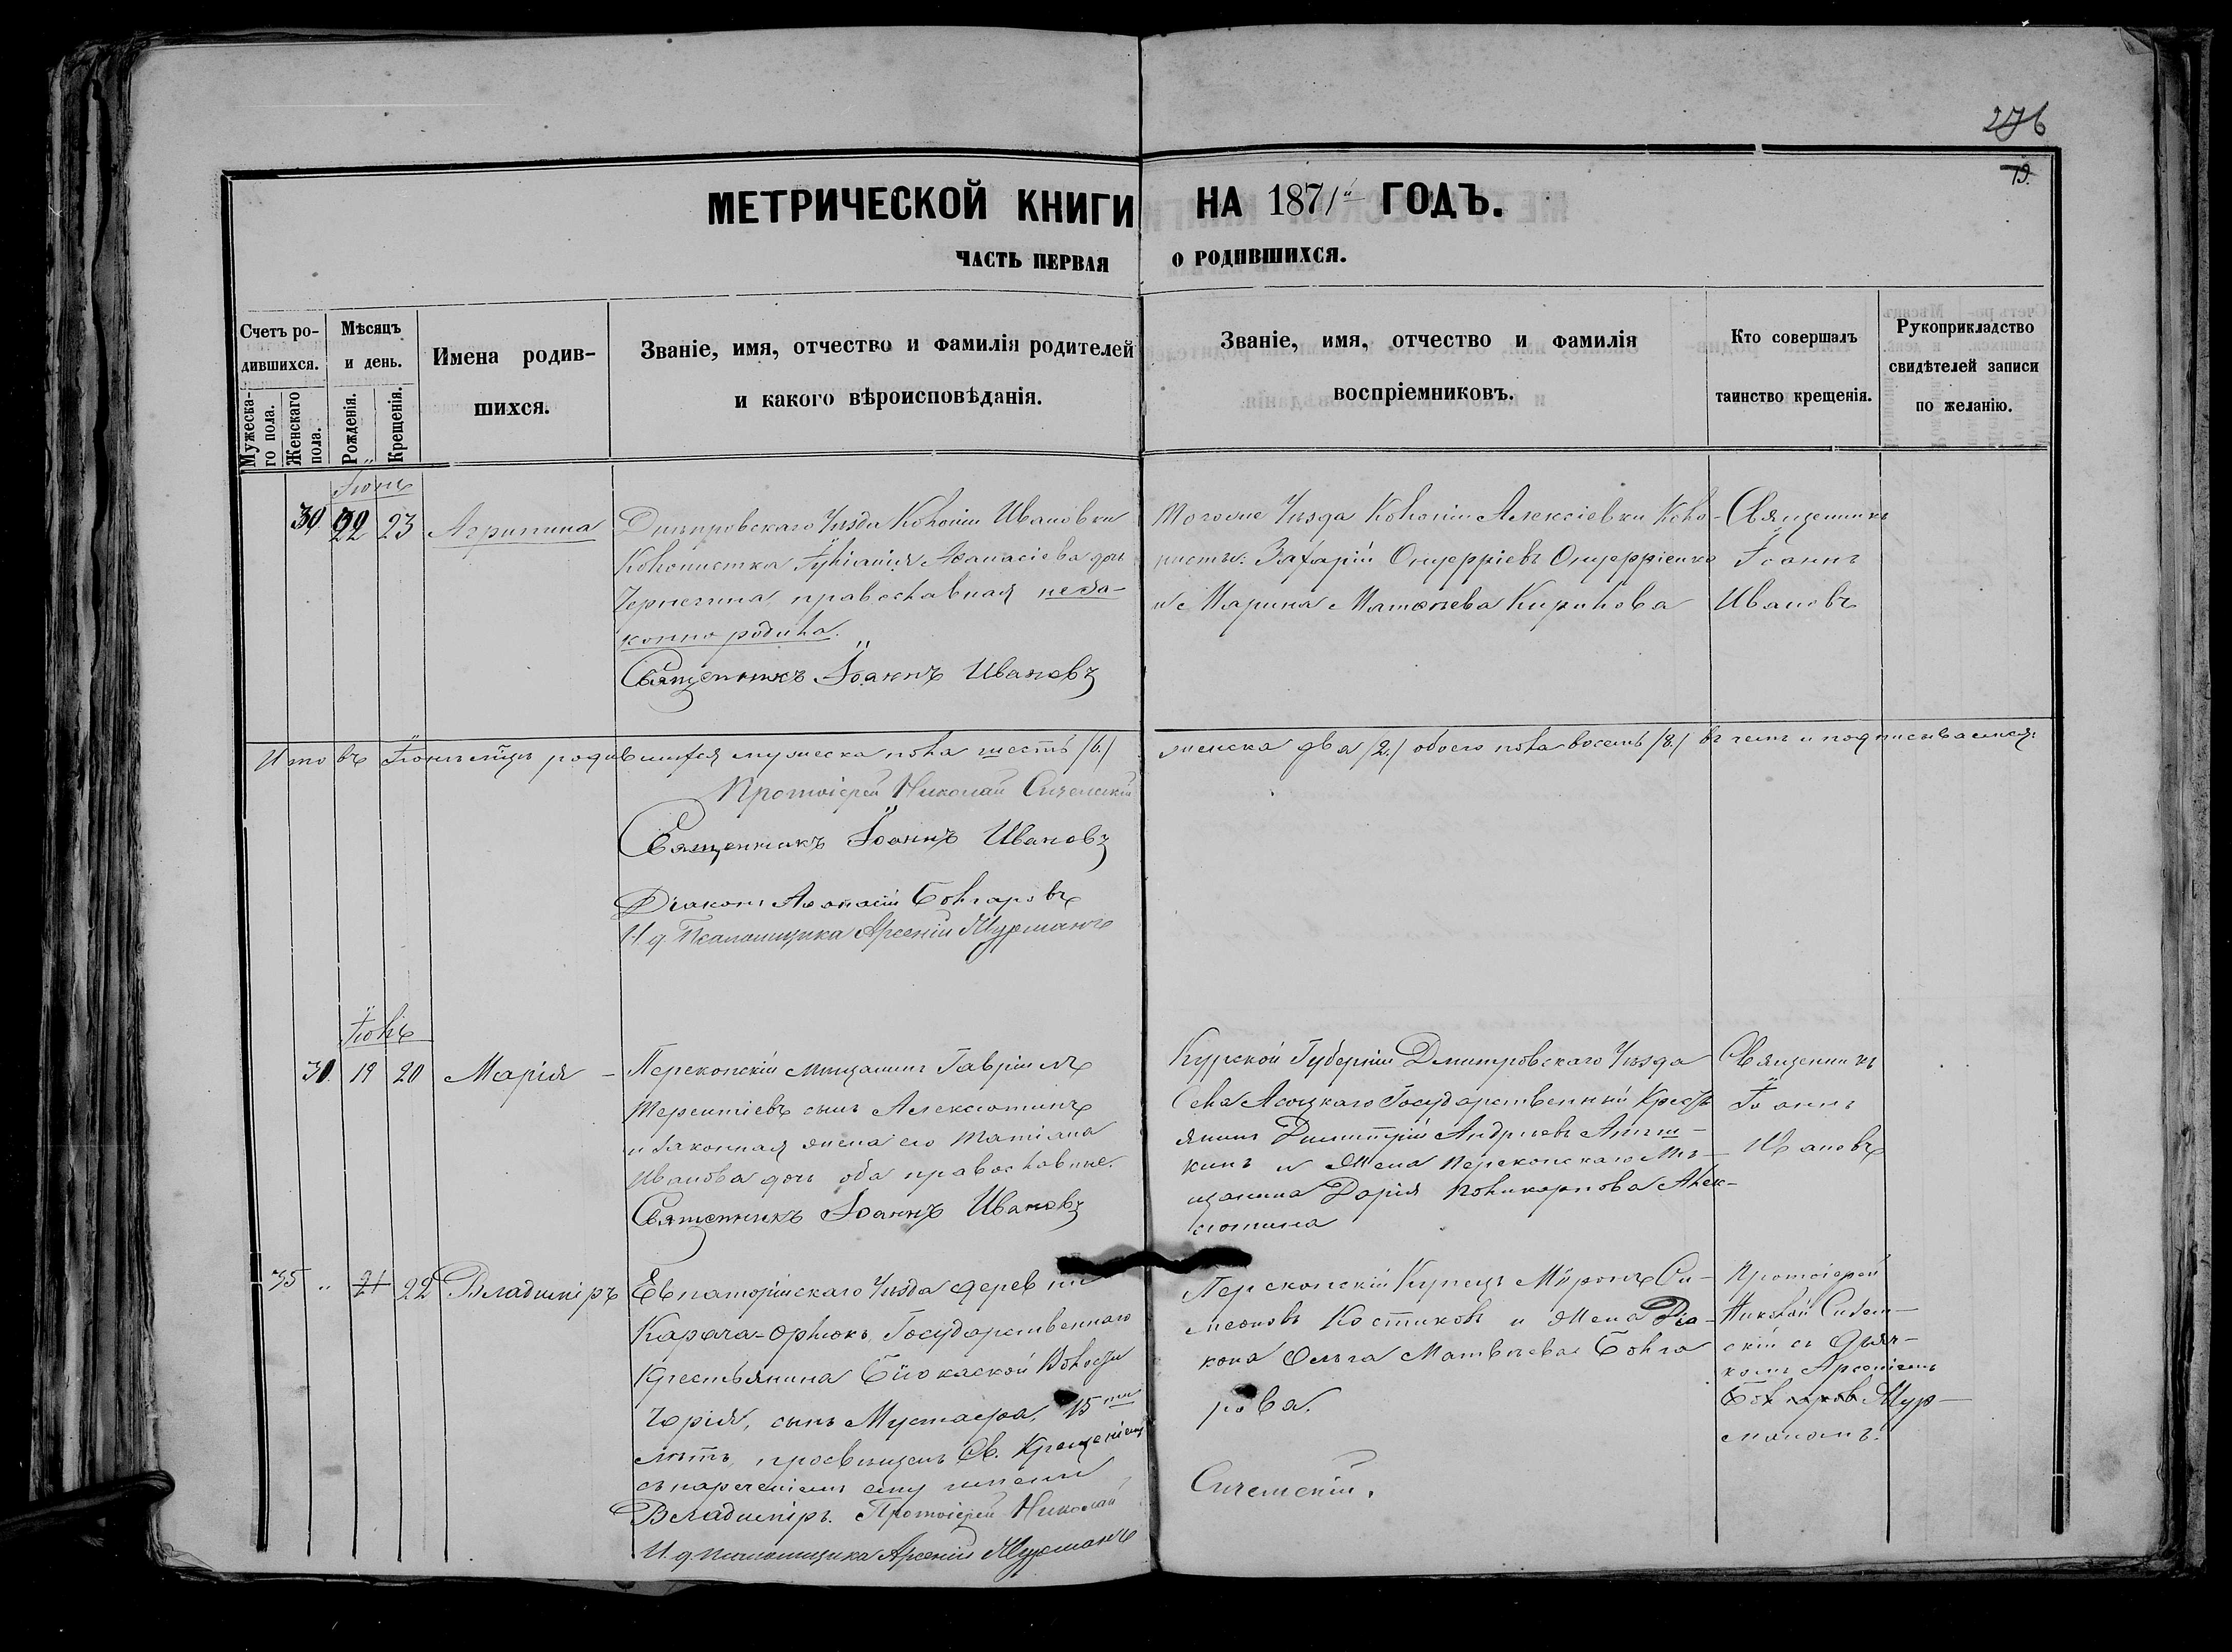 276
19.
МЕТРИЧЕСКОЙ КНИГИ НА 1871й ГОДЪ.
ЧАСТЬ ПЕРВАЯ О РОДИВШИХСЯ.
Счетъ ро-
дившихся.
Мужеска-
го пола.
Женскаго
пола.
Мѣсяцъ
и день.
Рожденія.
Крещенія.
Имена родив-
шихся.
Званіе, имя, отчество и фамилія родителей
и какого вѣроисповѣданія.
Званіе, имя, отчество и фамилія
воспріемниковъ.
Кто совершалъ
таинство крещенія.
Рукоприкладство
свидѣтелей записи
по желанію.
Іюнь
30 22 23 Агрипина
Днѣпровскаго Уѣзда Колоніи Ивановки
Колонистка Аѳанасіева дочь
православная неза-
конно родила.
Священникъ Іоаннъ Ивановъ
Тогоже Уѣзда Колоніи Алексіевки Коло-
нистъ: Захарій Онуфріевъ Онуфріенко
и Марина Кирилова
Священникъ
Іоаннъ
Ивановъ
Итого въ Іюнѣ родившихся мужеска пола шесть /6./ женска два /2./ обоего пола восемь /8./ въ чемъ и подписываемся:
Протоіерей Николай
Священникъ Іоаннъ Ивановъ
Діаконъ Аѳанасій Болгаровъ
И. д. Псаломщика Арсеній Мурманъ
Іюль
31. 19 20 Марія
Перекопскій мѣщанинъ Гавріилъ
Терентіевъ сынъ Алексютинъ
и законная жена его Татіана
Иванова дочь оба православные.
Священникъ Іоаннъ Ивановъ
Курской Губерніи Дмитровскаго Уѣзда
Села Государственный Кресть-
янинъ Димитрій Андреевъ
кинъ и Жена Перекопскаго Мѣ-
щанина Дарія Поликарпова Алек-
сютина
Священникъ
Іоаннъ
Ивановъ
35 " 21 22 Владиміръ
Евпаторійскаго Уѣзда деревни
Карача- Государственнаго
Крестьянина Волости
сынъ Мустафа, 15ти
лѣтъ, просвѣщенъ Св. Крещеніемъ
съ нареченіемъ ему имени
Владиміръ. Протоіерей Николай
И. д. псаломщика Арсеній Мурманъ
Перекопскій Купецъ Миронъ Си-
меоновъ Костиковъ и Жена Діа-
кона Ольга Матвѣева Болга-
рова.
Протоіерей
Николай
скій съ дьяч-
комъ Арсеніемъ
Болгаровъ Мур-
маномъ.